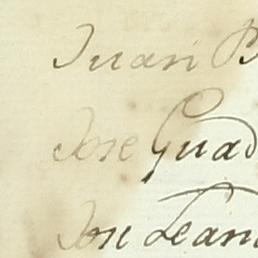 Juan B
Jose Guad
Jose Lean